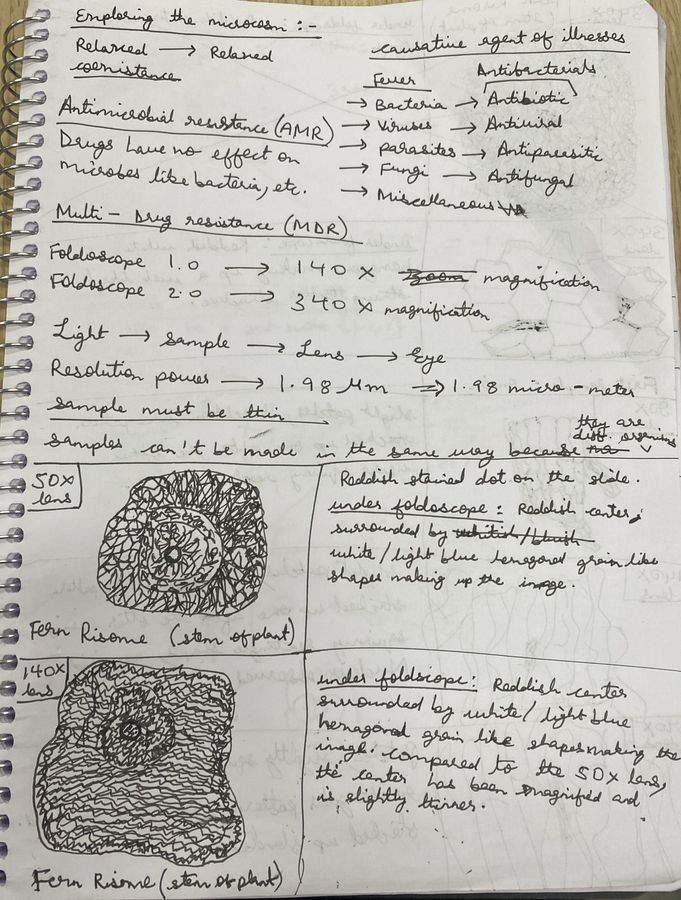 Exploring the microcosm :-
Relaxed → Relaxed
coexistance
Antimicrobial resistance (AMR)
Drugs have no effect on
microbes like bacteria, etc.
causative agent of illnesses
Fever
Antibacterials
→ Bacteria → Antibiotic
→ Viruses → Antiviral
→ parasites → Antiparasitic
→ Fungi → Antifungal
→ Miscellaneous
Multi - Drug resistance (MDR)
Foldoscope 1.0 → 140 x Zoom magnification
Foldoscope 2.0 → 340 x magnification
Light → sample → Lens → Eye
Resolution power → 1.98 Mm ⇒ 1.98 micro-meter
sample must be thin
they are
diff. organisms
samples can't be made in the same way because
50x
lens
Fern Risome (stem of plant)
Reddish stained dot on the slide.
under foldoscope : Reddish center,
surrounded by whitish/bluish
white/light blue hexagonal grain like
shapes making up the image.
140x
lens
Fern Risome (stem of plant)
under foldscope: Reddish center
surrounded by white/light blue
hexagonal grain like shapes making the
image. compared to the 50x lens,
the center has been magnified and
is slightly thinner.